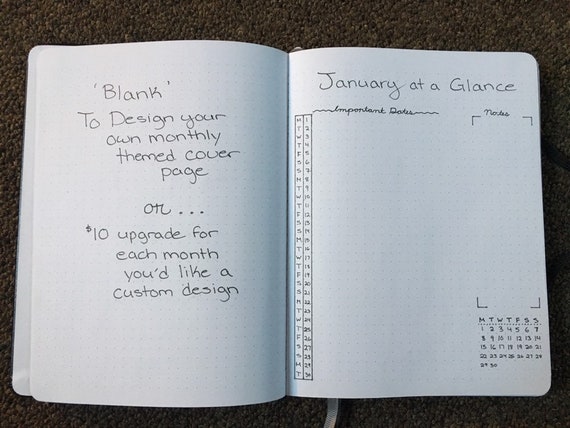 'Blank'
To Design your
own monthly
themed cover
page
or ...
$10 upgrade for
each month
you'd like a
custom design
January at a Glance
Important Dates
M 1
T 2
W 3
T 4
F 5
S 6
S 7
M 8
T 9
W 10
T 11
F 12
S 13
S 14
M 15
T 16
W 17
T 18
F 19
S 20
S 21
M 22
T 23
W 24
T 25
F 26
S 27
S 28
M 29
T 30
Notes
M T W T F S S
1 2 3 4 5 6 7
8 9 10 11 12 13 14
15 16 17 18 19 20 21
22 23 24 25 26 27 28
29 30